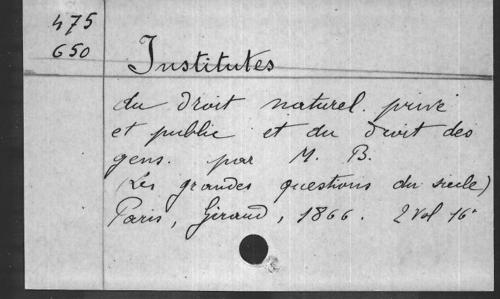 475
650
Institutes
du droit naturel. privé
et public et du droit des
gens. par M. B.
(Les grandes questions du siècle)
Paris, Giraud, 1866. 2 vol 16°